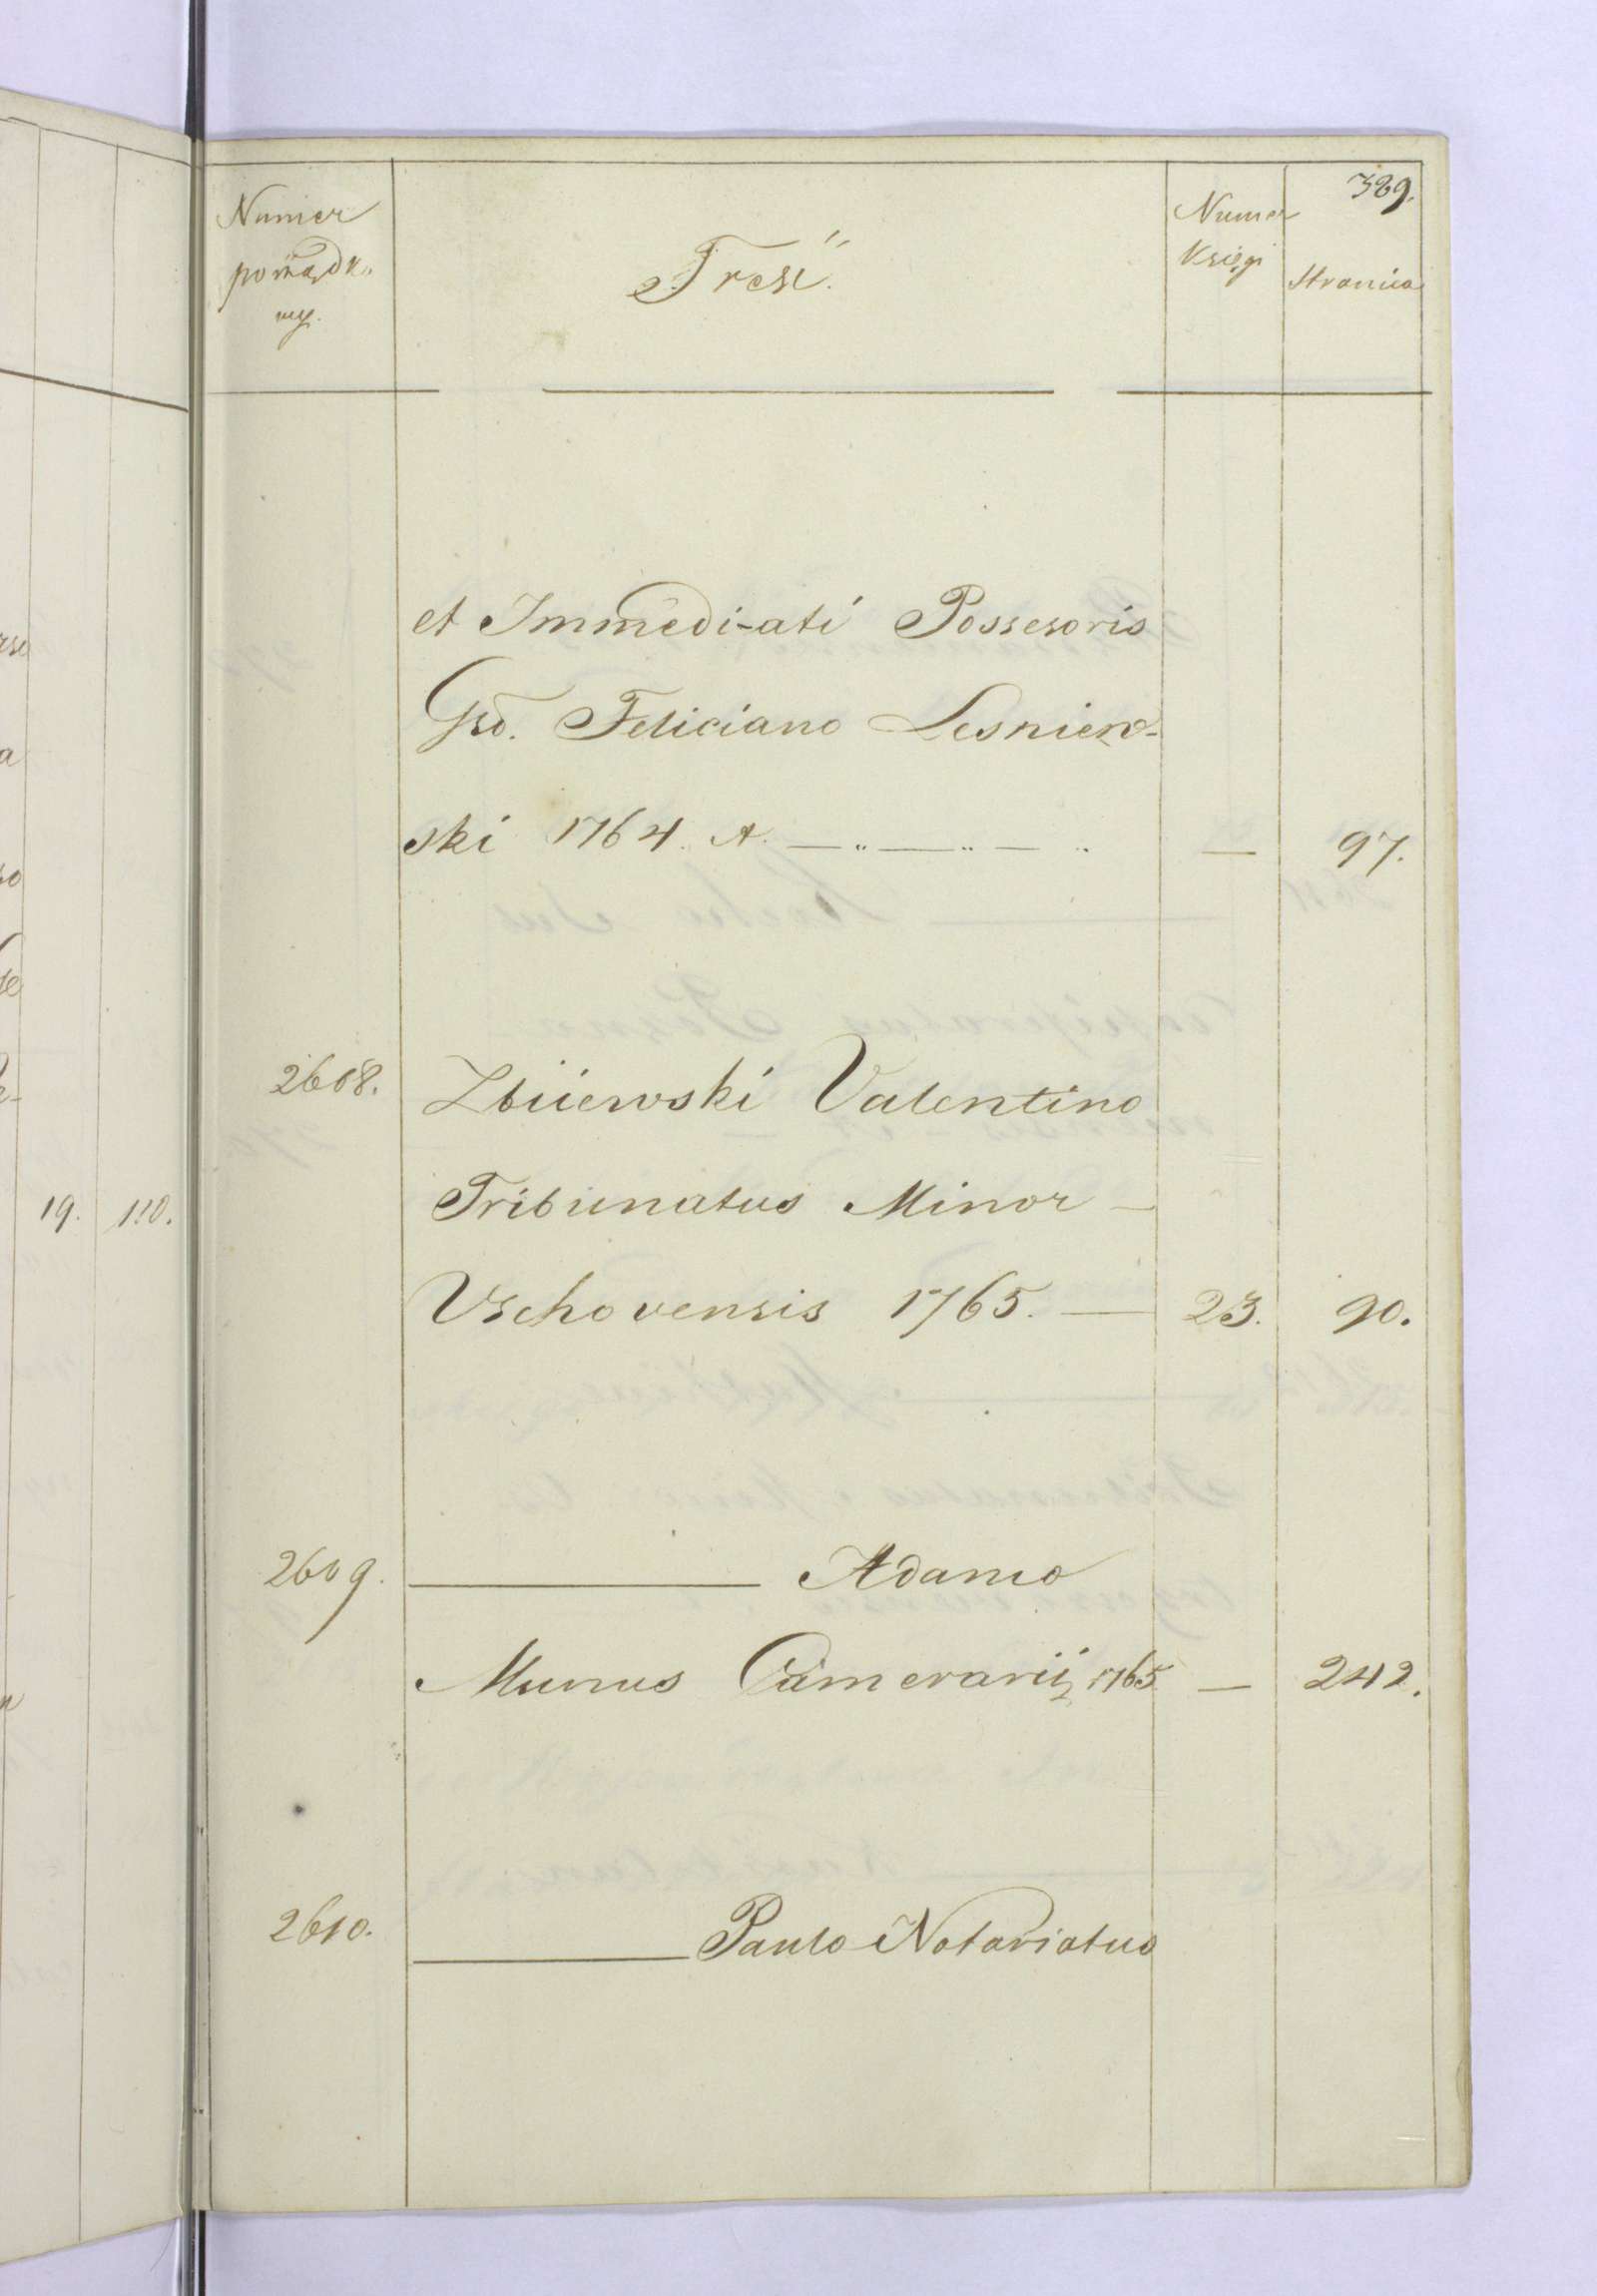 389.
Numer porządkowy.
Treść.
Numer Księgi
Stronica
et Immedi-ati Possesoris
Gsd. Feliciano Lesniew-
ski 1764. A. — " — " — " — 97.
2608. Zbiiewski Valentino
Tribunatus Minor —
Vschovensis 1765. — 23. 90.
2609. ——— Adamo
Munus Camerarii, 1765 — 242.
2610. ——— Paulo Notariatus
19. 110.